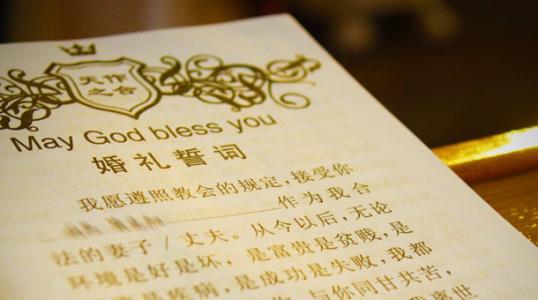 天作
之合
May God bless you
婚礼誓词
我愿遵照教会的规定,接受你
作为我合
法的妻子/丈夫。从今以后,无论
环境是好是坏,是富贵是贫贱,是
是疾病,是成功是失败,我都
与你同甘共苦,